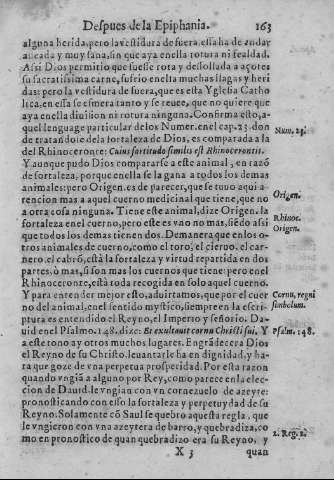 Despues de la Epiphania. 163
alguna herida, pero la vestidura de fuera, essa ha de andar
atacada y muy sana, sin que aya en ella rotura ni fealdad.
Assi Dios permitio que fuesse rota y dessollada a açotes
su sacratissima carne, sufrio en ella muchas llagas y heri
das: pero la vestidura de fuera, que es esta Yglesia Catho
lica, en essa se esmera tanto y se reuee, que no quiere que
aya en ella diuision ni rotura ninguna. Confirma esto, a-
quel lenguage particular de los Numer. en el cap. 23. don
de tratando de la fortaleza de Dios, es comparada a la
del Rhinoceronte: Cuius fortitudo similis est Rhinocerontis.
Num. 23.
Y aunque pudo Dios compararse a este animal, en razõ
de fortaleza, porque en ella se la gana a todos los demas
animales: pero Origen. es de parecer, que se tuuo aqui a-
Origen.
tencion mas a aquel cuerno medicinal que tiene, que no
a otra cosa ninguna. Tiene este animal, dize Origen. la
Rhinoc.
fortaleza en el cuerno, pero este es vno no mas, siẽdo assi
Origen.
que todos los demas tienen dos. De manera que en los o-
tros animales de cuerno, como el toro, el cieruo, el car-
nero, el cabrõ, està la fortaleza y virtud repartida en dos
partes, ò mas, si son mas los cuernos que tiene: pero en el
Rhinoceronte, està toda recogida en solo aquel cuerno.
Y para entender mejor esto, aduirtamos, que por el cuer
Cornu, regni
no del animal, en el sentido mystico, siempre en la escri-
simbolum.
ptura es entendido el Reyno, el Imperio y señorio. Da-
uid en el Psalmo. 148. dize: Et exaltauit cornu Christi sui. Y
Psalm. 148.
a este tono ay otros muchos lugares. Engrãdecera Dios
el Reyno de su Christo, leuantarle ha en dignidad, y ha-
ra que goze de vna perpetua prosperidad. Por esta razon
quando vngiã a alguno por Rey, como parece en la elec-
cion de Dauid, le vngian con vn cornezuelo de azeyte:
pronosticando con esso la fortaleza y perpetuydad de su
Reyno. Solamente cõ Saul se quebro aquesta regla, que
le vngieron con vna azeytera de barro, y quebradiza, co
mo en pronostico de quan quebradizo era su Reyno, y
2. Reg. 2.
X 3 quan